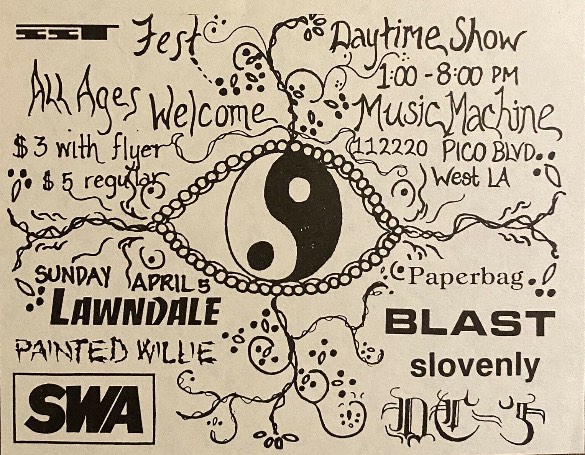 SST Fest
All Ages Welcome
$3 with flyer
$5 regular
Daytime Show
1:00 - 8:00 PM
Music Machine
112220 PICO BLVD.
West LA
SUNDAY APRIL 5
LAWNDALE
PAINTED WILLIE
SWA
Paperbag
BLAST
slovenly